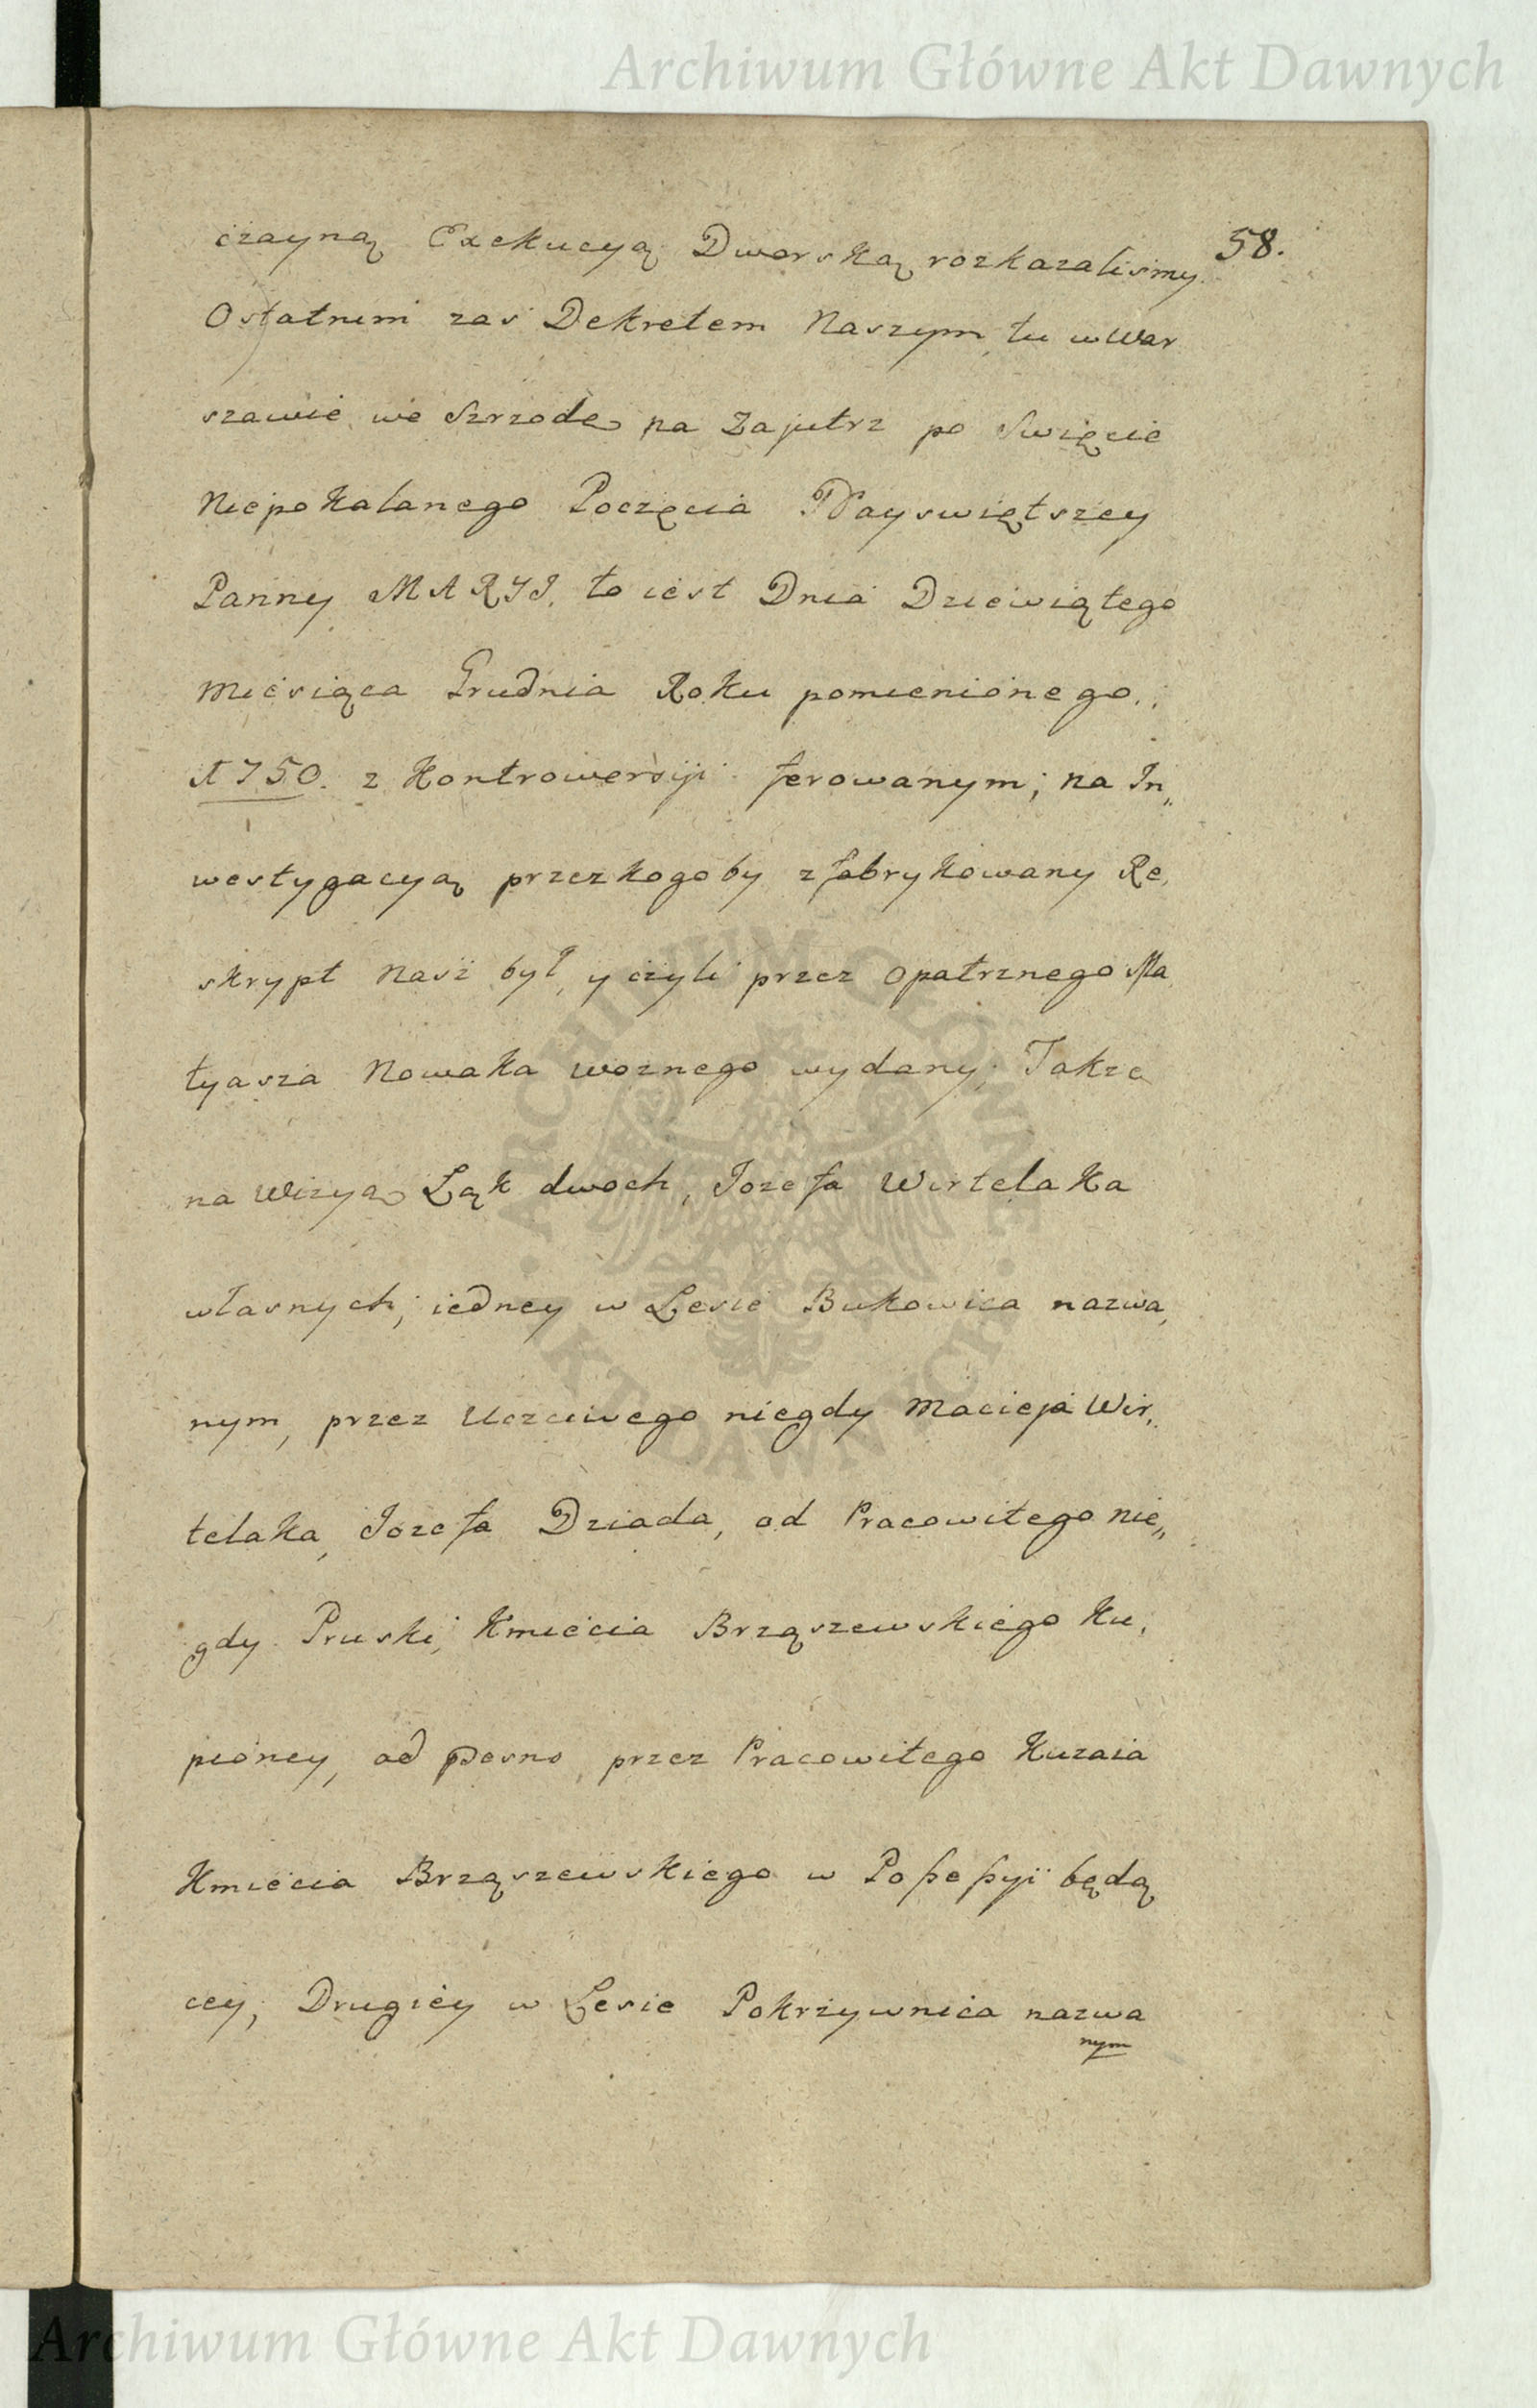 Archiwum Główne Akt Dawnych
58.
czayną Exekucyą Dworską rozkazalismy.
Ostatnim zas Dekretem Naszym tu w War
szawie we Szrzodę na Zajutrz po Swięcie
Niepokalanego Poczęcia Nayswiętszey
Panny MARYI. to iest Dnia Dziewiątego
Miesiąca Grudnia Roku pomienionego.
1750. z Kontrowersyi ferowanym; na In„
westygacyą przez kogoby zfabrykowany Re,
skrypt Nasz był, y czyli przez Opatrznego Ma
tyasza Nowaka woznego wydany; Takze
na Wizyą Łąk dwoch, Jozefa Wirtelaka
własnych; iedney w Lesie Bukowica nazwa,
nym, przez Uczciwego niegdy Macieja Wir,
telaka, Jozefa Dziada, od Pracowitego nie„
gdy Pruski, Kmiecia Brząszewskiego Ku,
pioney, od Pesno, przez Pracowitego Kuzaia
Kmiecia Brząszewskiego w Poſseſsyi będą
cey; Drugiey w Lesie Pokrzywnica nazwa
nym
ARCHIWUM GŁÓWNE
AKT DAWNYCH
Archiwum Główne Akt Dawnych